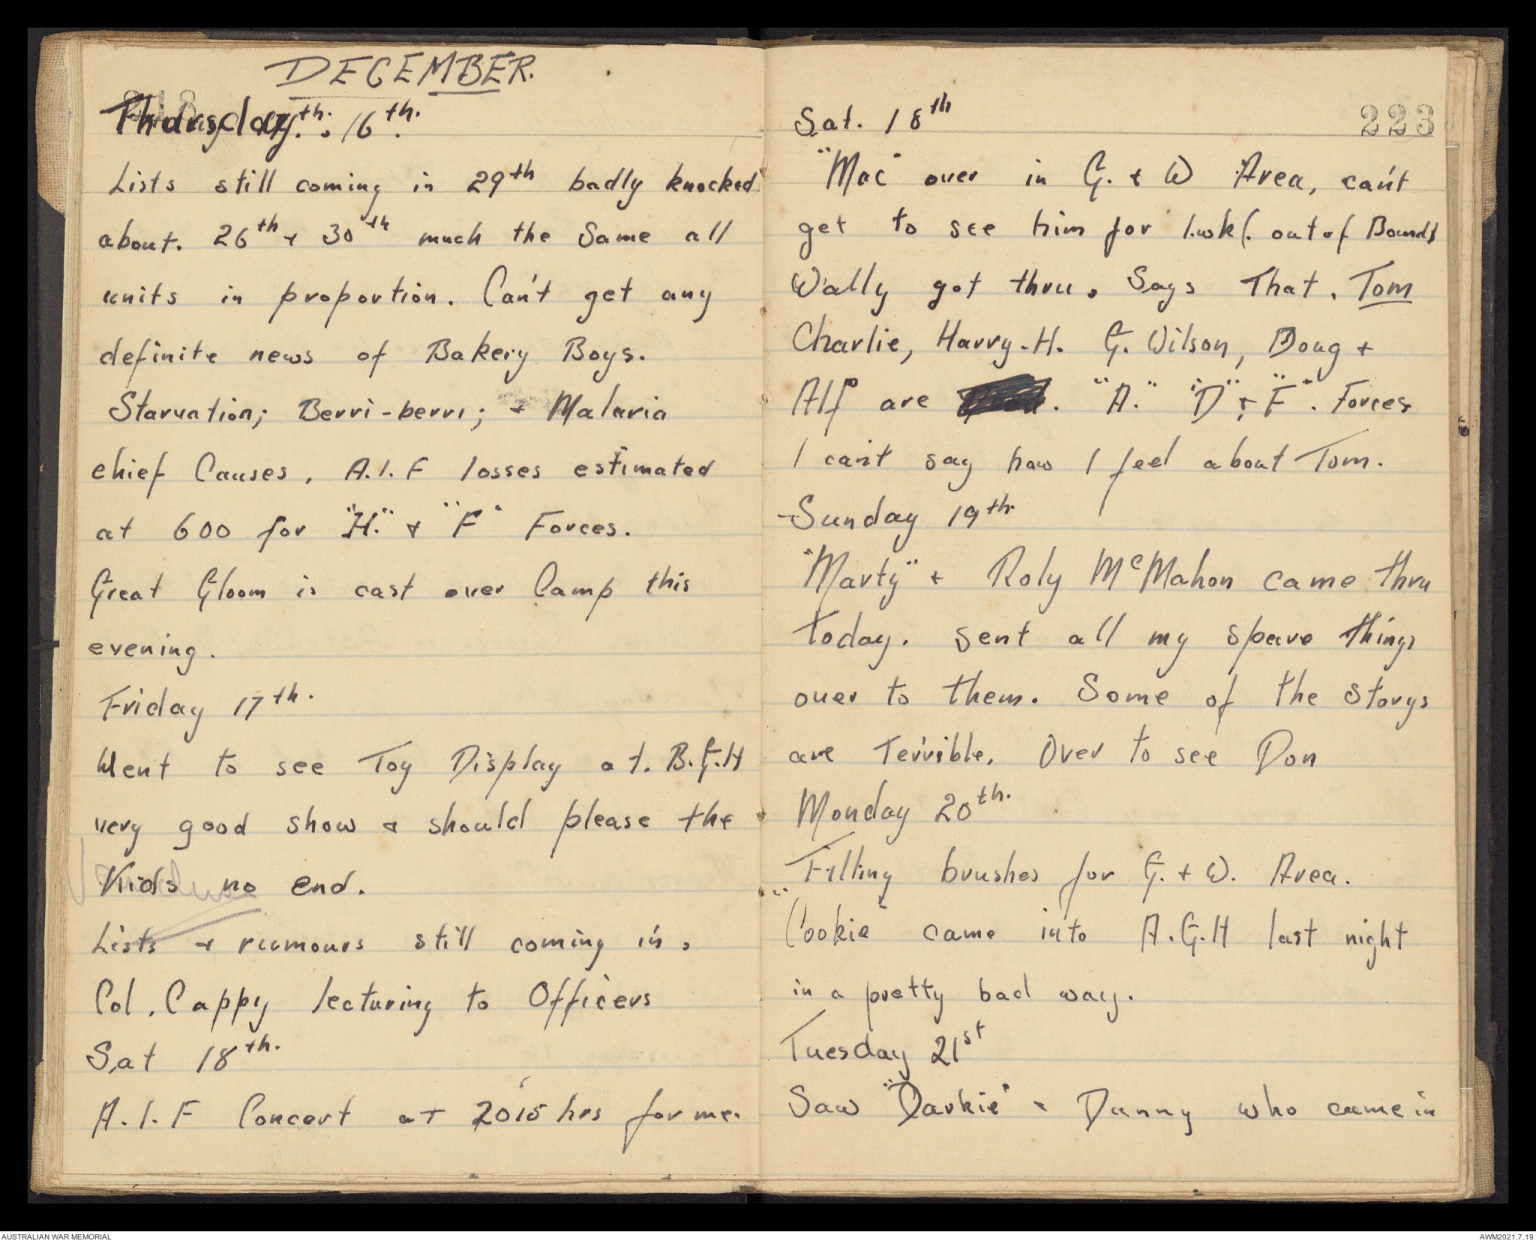 DECEMBER.
Thursday 16th.
Lists still coming in 29th badly knocked
about. 26th & 30th much the Same all
units in proportion. Can't get any
definite news of Bakery Boys.
Starvation; Berri-berri; & Malaria
chief Causes. A.I.F losses estimated
at 600 for "H." & "F" Forces.
Great Gloom is cast over Camp this
evening.
Friday 17th.
Went to see Toy Display at. B.G.H
very good show & should please the
Kids no end.
Lists & rumours still coming in.
Col. Cappy lecturing to Officers
Sat 18th.
A.I.F Concert at 2015 hrs for me.
223
Sat. 18th
"Mac" over in G. & W Area, can't
get to see him for 1.wk(. out of Bounds
Wally got thru. Says That. Tom
Charlie, Harry-H. G. Wilson, Doug +
Alf are . "A." "D" & "F". Forces
I can't say how I feel about Tom.
-Sunday 19th.
"Marty" + Roly McMahon came thru
today. sent all my spare things
over to them. Some of the storys
are Terrible. Over to see Don
Monday 20th.
Filling brushes for G. + W. Area.
"Cookie" came into A.G.H last night
in a pretty bad way.
Tuesday 21st
Saw "Darkie" & Danny who came in
AUSTRALIAN WAR MEMORIAL
AWM2021.7.19